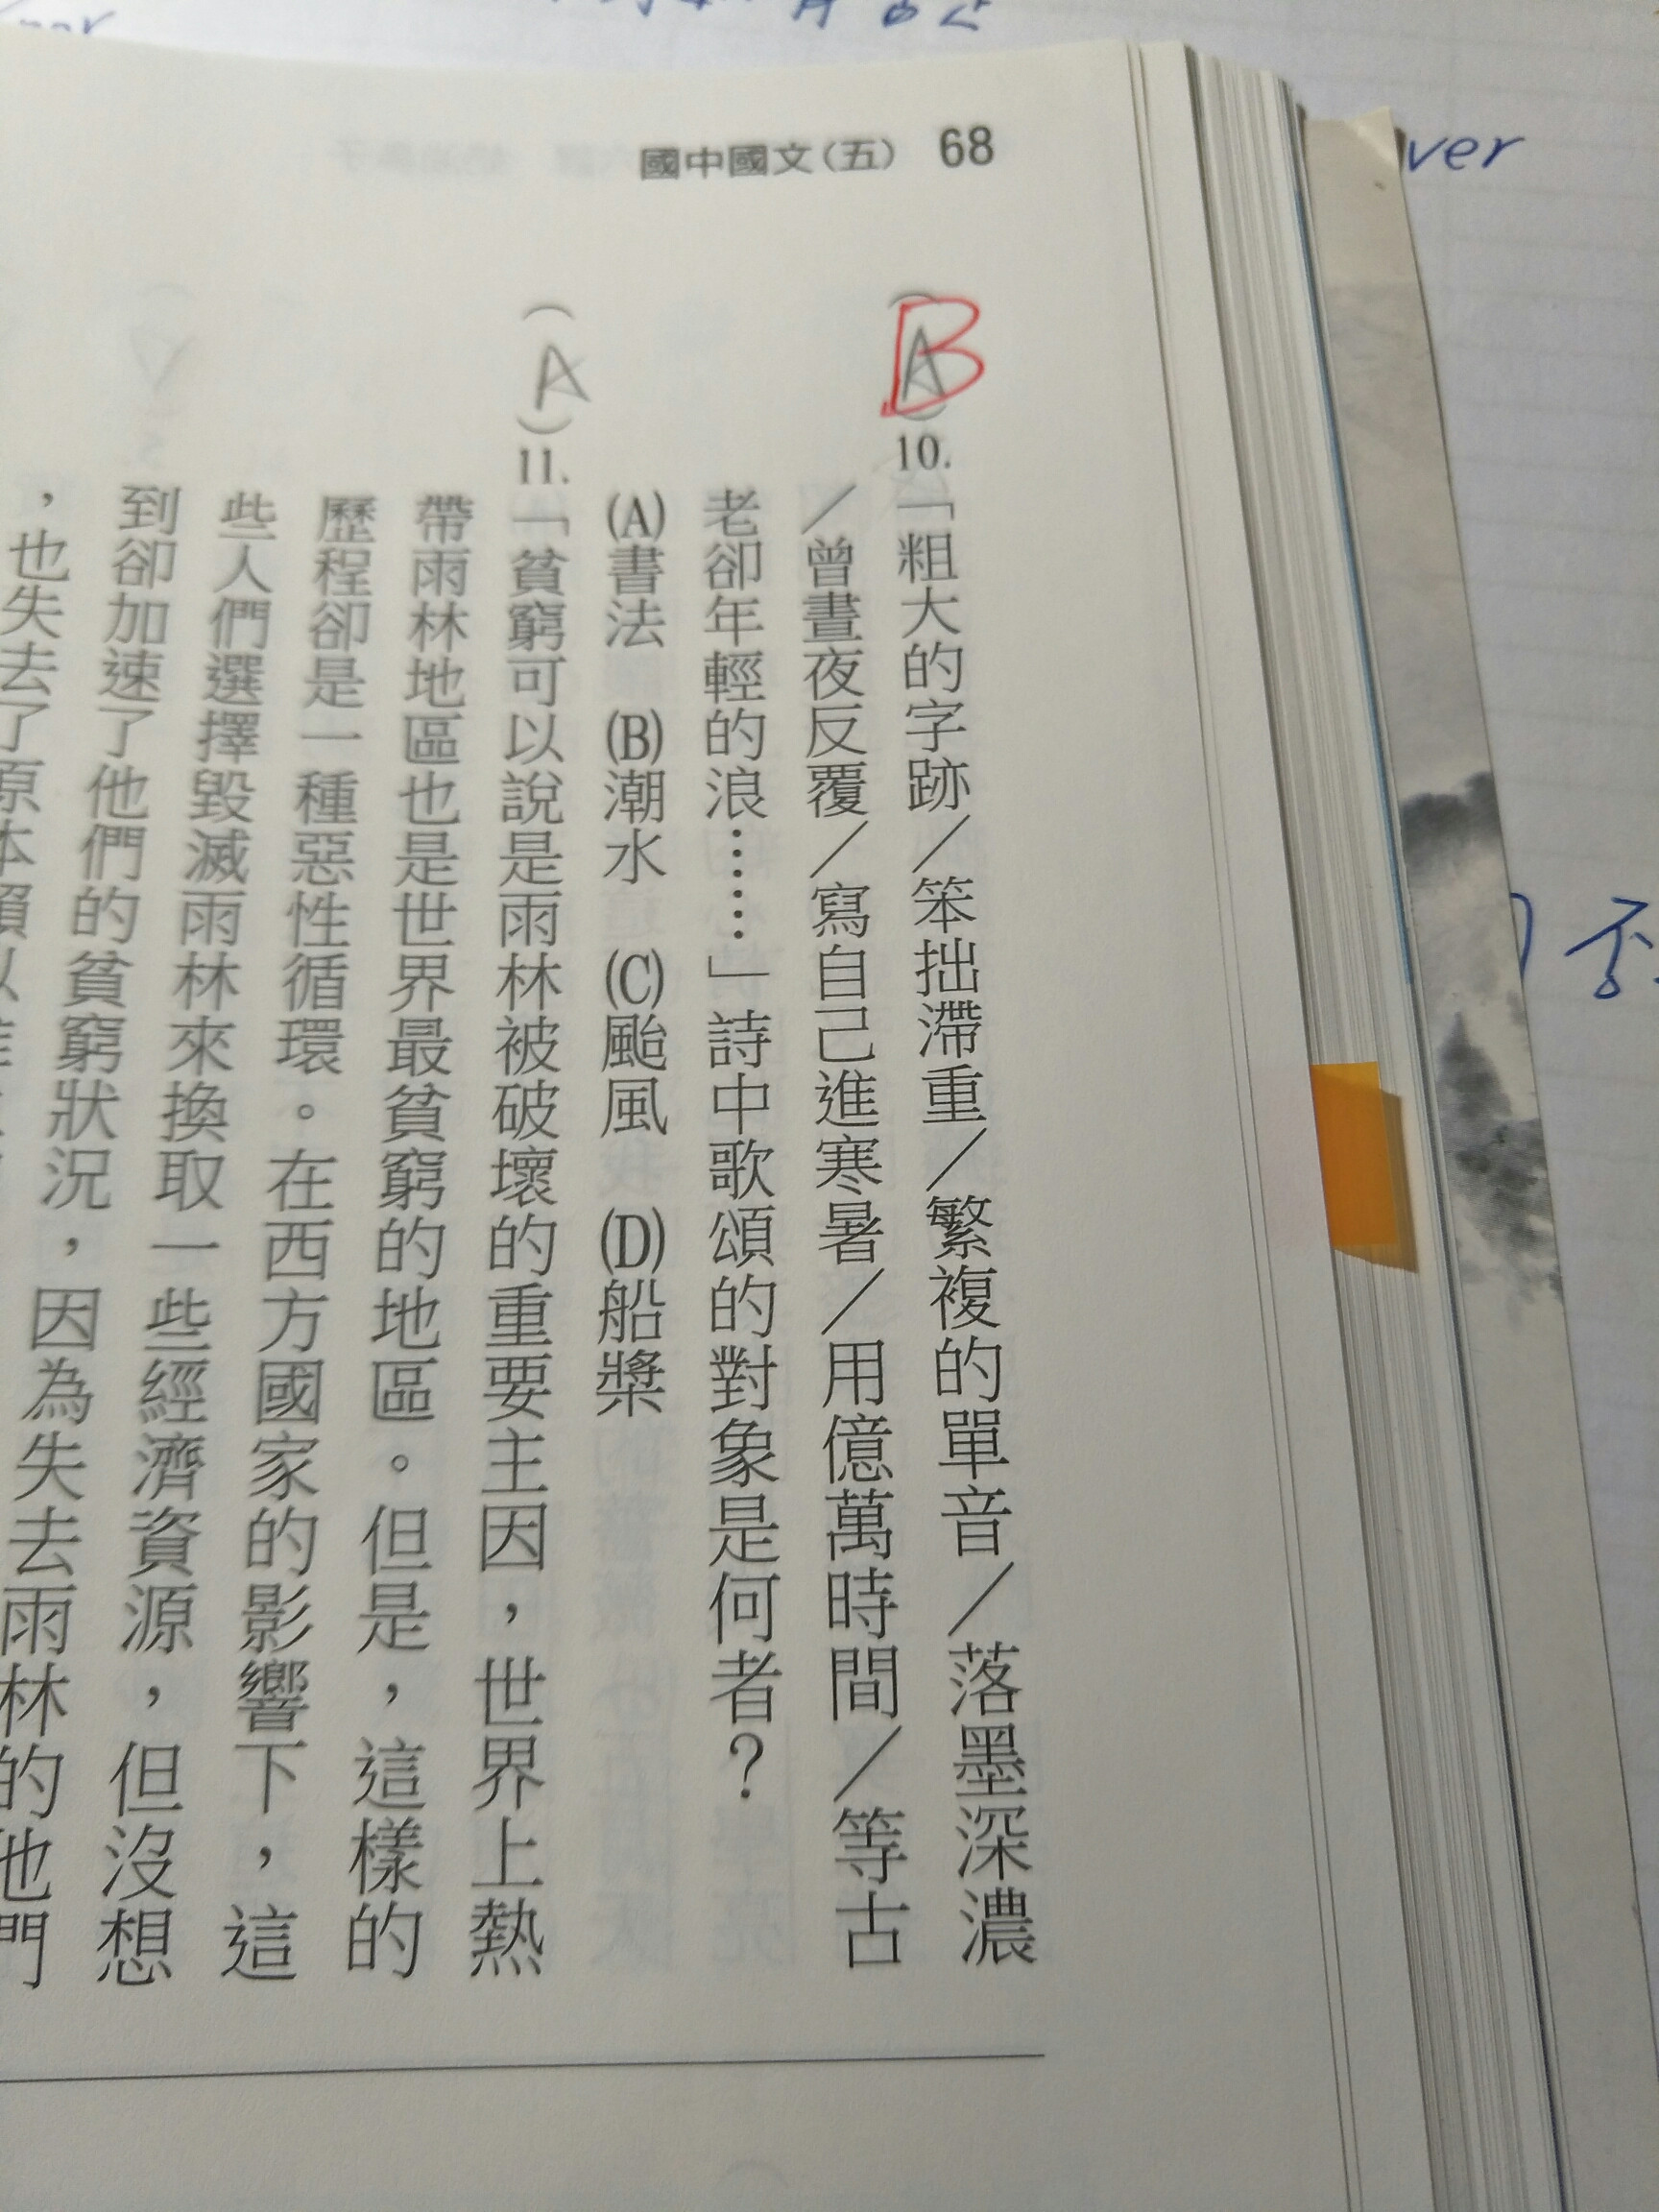 國中國文(五) 68
(A) B 10.「粗大的字跡／笨拙滯重／繁複的單音／落墨深濃
／曾晝夜反覆／寫自己進寒暑／用億萬時間／等古
老卻年輕的浪……」詩中歌頌的對象是何者？
(A)書法 (B)潮水 (C)颱風 (D)船槳
(A) 11.「貧窮可以說是雨林被破壞的重要主因，世界上熱
帶雨林地區也是世界最貧窮的地區。但是，這樣的
歷程卻是一種惡性循環。在西方國家的影響下，這
些人們選擇毀滅雨林來換取一些經濟資源，但沒想
到卻加速了他們的貧窮狀況，因為失去雨林的他們
，也失去了原本賴以
ver